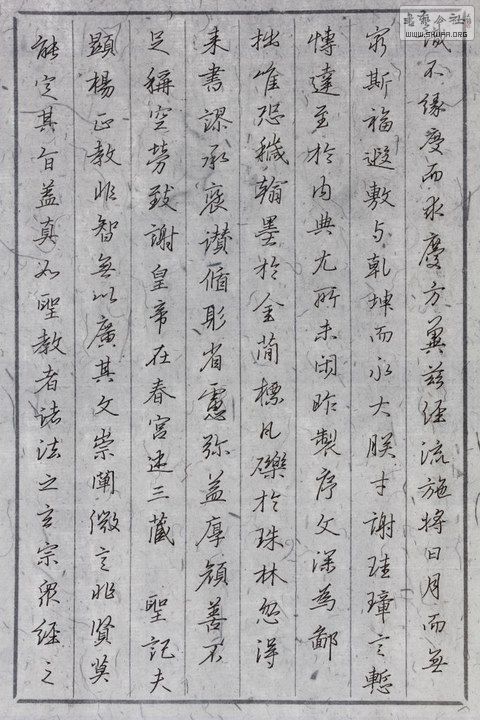 书艺公社
WWW.SHUFA.ORG
诚不缘虔而求慶方冀兹经流施将日月而無
穷斯福遐敷与乾坤而永大朕才谢珪璋言慙
博達至於内典尤所未闲昨製序文深為鄙
拙唯恐穢翰墨於金简標凡礫於珠林忽得
来书謬承褒讚循躬省慮弥益厚颜善不
足稱空劳致謝皇帝在春宫述三藏 聖記夫
顯楊正教非智無以廣其文崇闡微言非賢莫
能定其旨盖真如聖教者诸法之玄宗眾经之